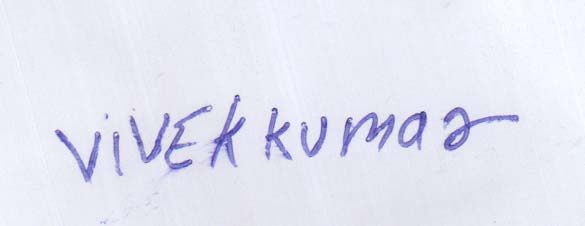 ViVEK KUmar